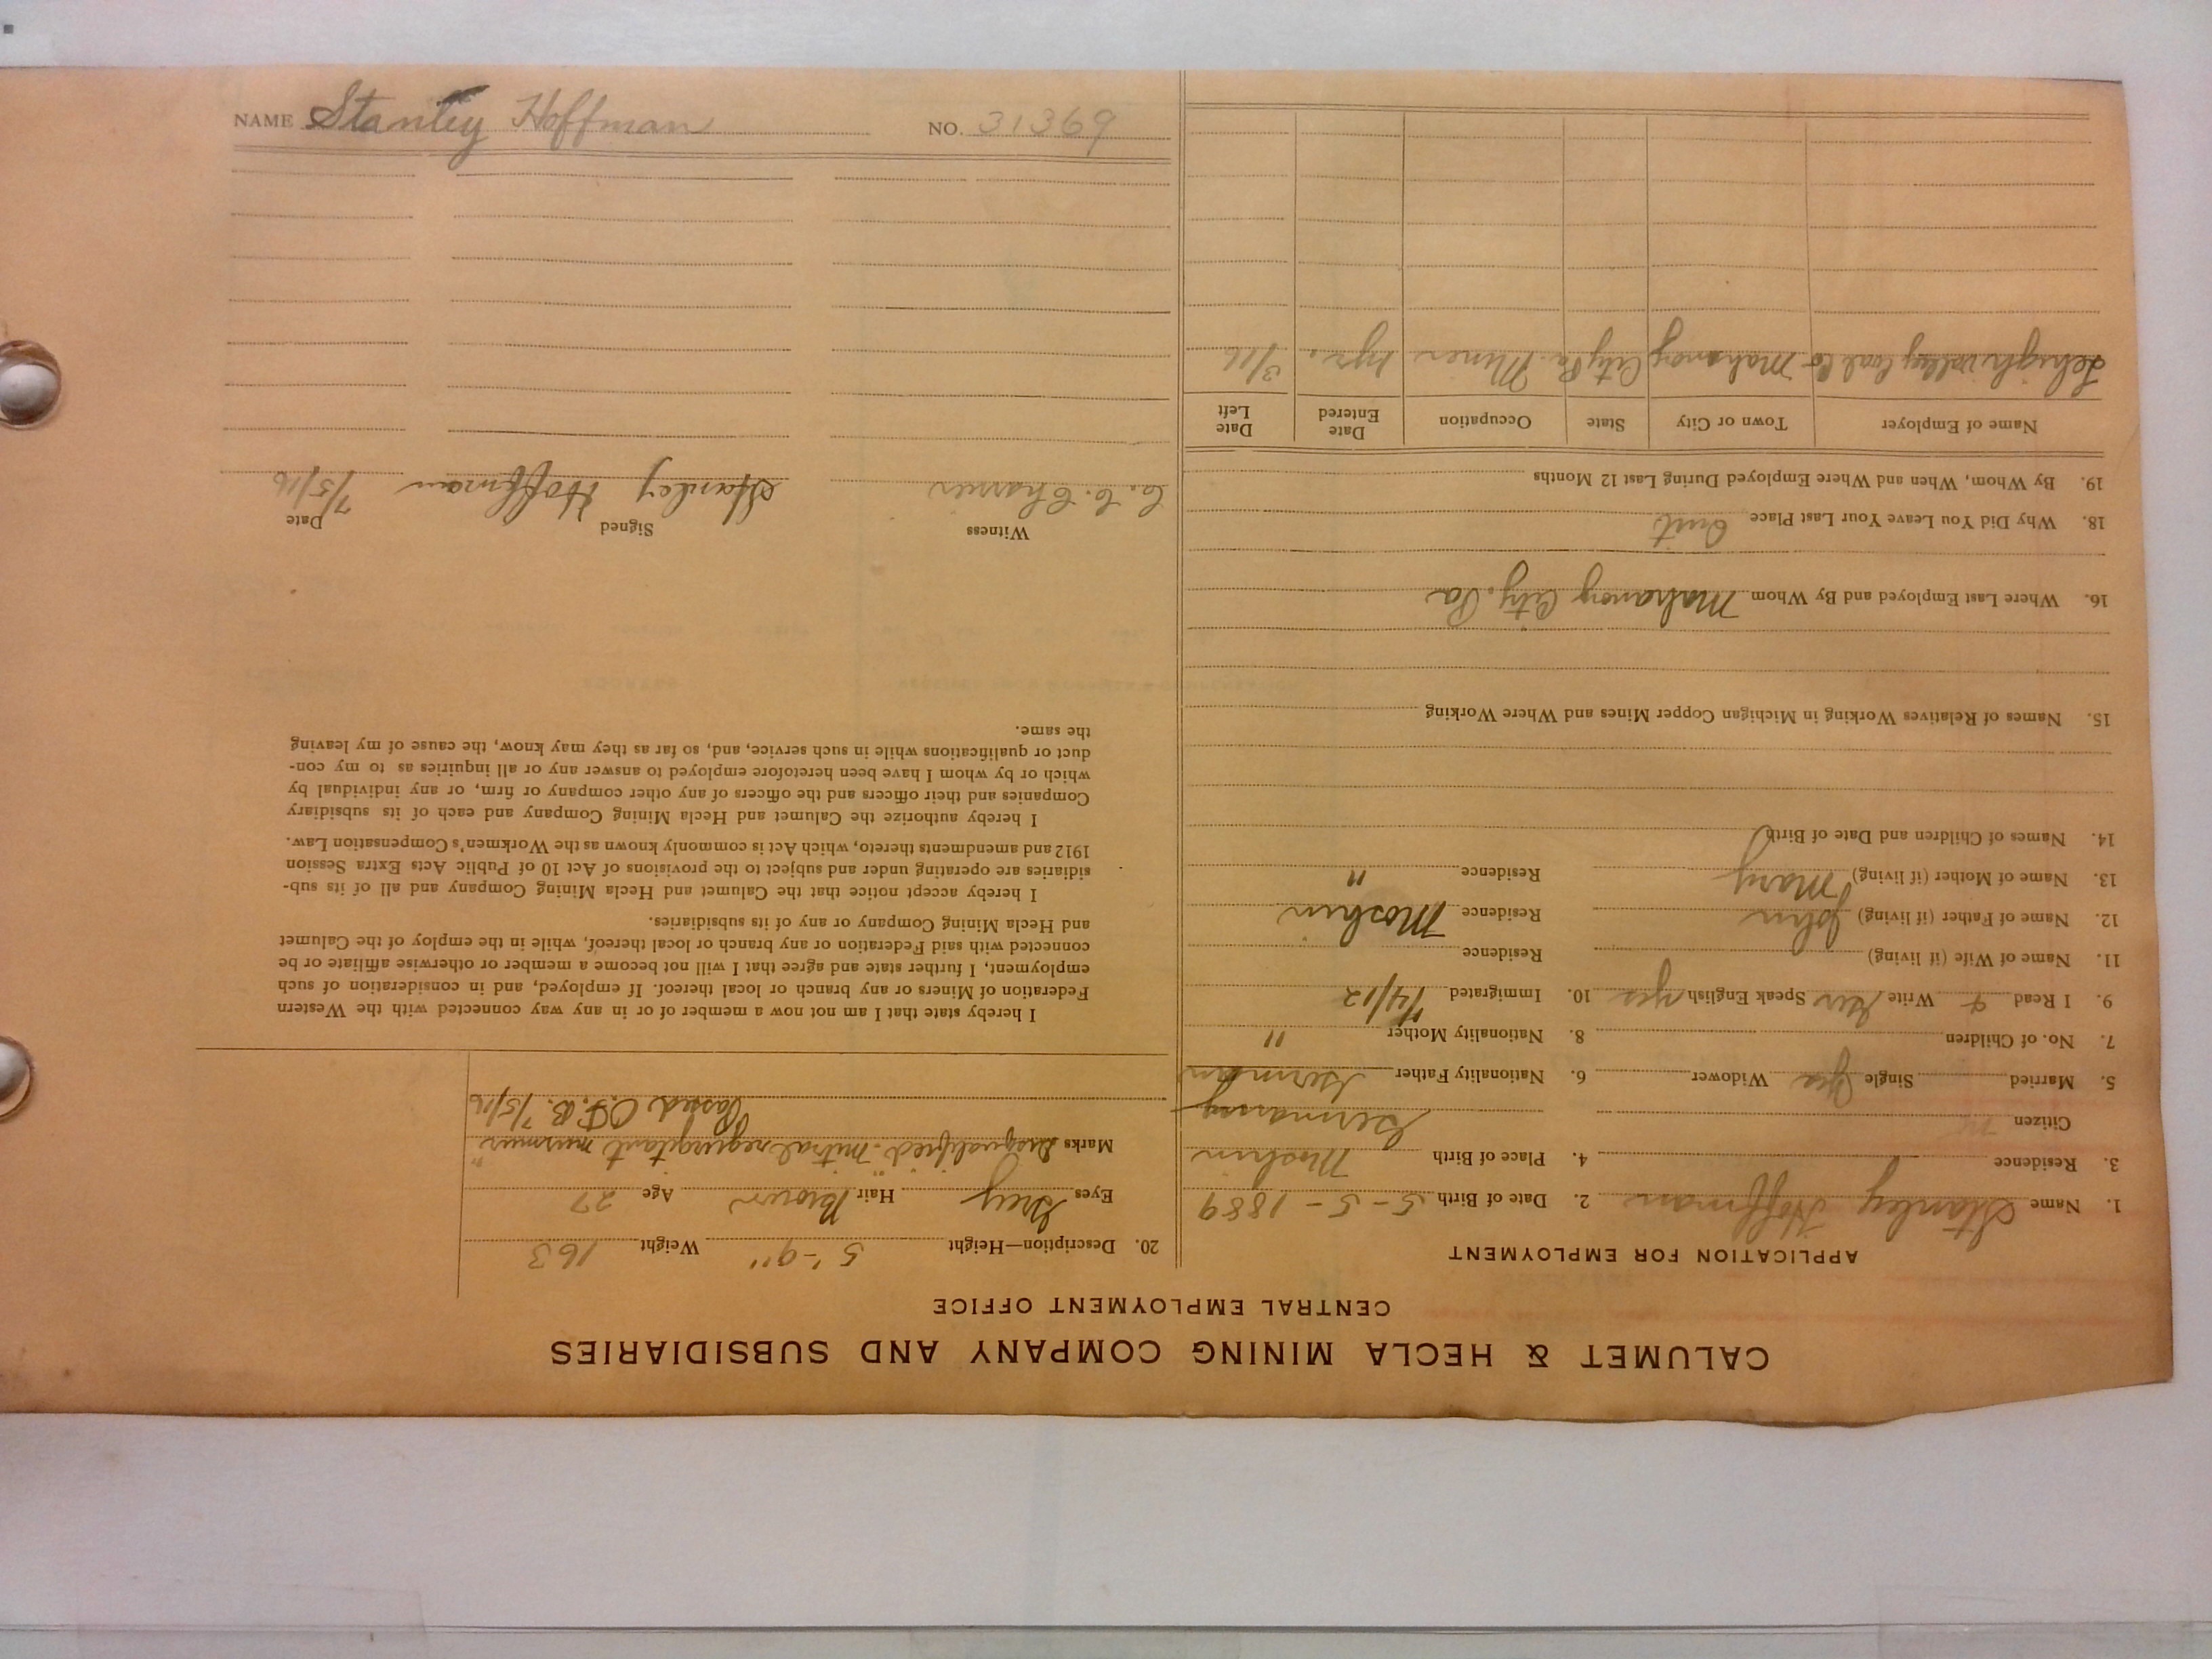 CALUMET & HECLA MINING COMPANY AND SUBSIDIARIES
CENTRAL EMPLOYMENT OFFICE
APPLICATION FOR EMPLOYMENT
1. Name Stanley Hoffman 2. Date of Birth 5-5-1889
3. Residence 4. Place of Birth Moshin
Citizen Germany
5. Married Single Yes Widower 6. Nationality Father German
7. No. of Children 8. Nationality Mother "
9. I Read & Write Ger Speak English yes 10. Immigrated 1/4/12
11. Name of Wife (if living) Residence
12. Name of Father (if living) John Residence Moshin
13. Name of Mother (if living) Mary Residence "
14. Names of Children and Date of Birth
15. Names of Relatives Working in Michigan Copper Mines and Where Working
16. Where Last Employed and By Whom Mahanoy City, Pa
18. Why Did You Leave Your Last Place Quit
19. By Whom, When and Where Employed During Last 12 Months
Name of Employer Town or City State Occupation Date Entered Date Left
Lehigh Valley Coal Co Mahanoy City Pa. Miner yrs. 3/16
20. Description—Height 5'-9" Weight 163
Eyes Grey Hair Brown Age 27
Marks Disqualified. "mitral regurgitant murmur"
Passed C.F.B. 7/5/16
I hereby state that I am not now a member of or in any way connected with the Western
Federation of Miners or any branch or local thereof. If employed, and in consideration of such
employment, I further state and agree that I will not become a member or otherwise affiliate or be
connected with said Federation or any branch or local thereof, while in the employ of the Calumet
and Hecla Mining Company or any of its subsidiaries.
I hereby accept notice that the Calumet and Hecla Mining Company and all of its sub-
sidiaries are operating under and subject to the provisions of Act 10 of Public Acts Extra Session
1912 and amendments thereto, which Act is commonly known as the Workmen's Compensation Law.
I hereby authorize the Calumet and Hecla Mining Company and each of its subsidiary
Companies and their officers and the officers of any other company or firm, or any individual by
which or by whom I have been heretofore employed to answer any or all inquiries as to my con-
duct or qualifications while in such service, and, so far as they may know, the cause of my leaving
the same.
Witness Signed Date
C. C. Stanley Hoffman 7/5/16
NAME Stanley Hoffman NO. 31369